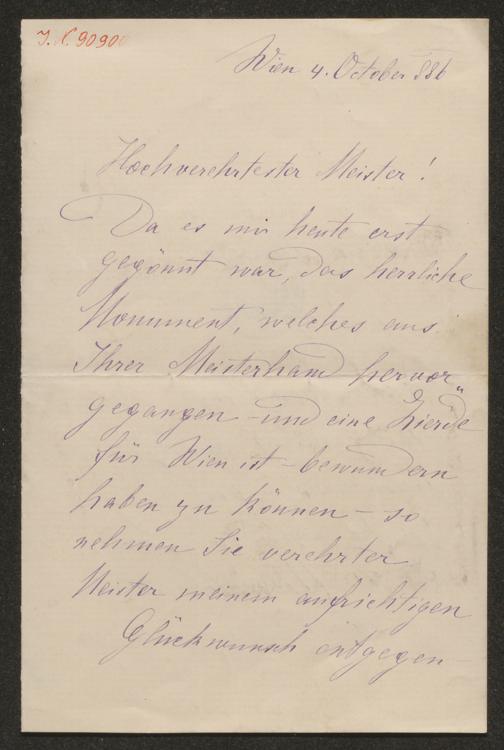 J. N. 90900
Wien 4. October 886
Hochverehrtester Meister!
Da es mir heute erst
gegönnt war, das herrliche
Monument, welches aus
Ihrer Meisterhand hervor"
gegangen – und eine Zierde
für Wien ist – bewundern
haben zu können – so
nehmen Sie verehrter
Meister meinem aufrichtigen
Glückwunsch entgegen –